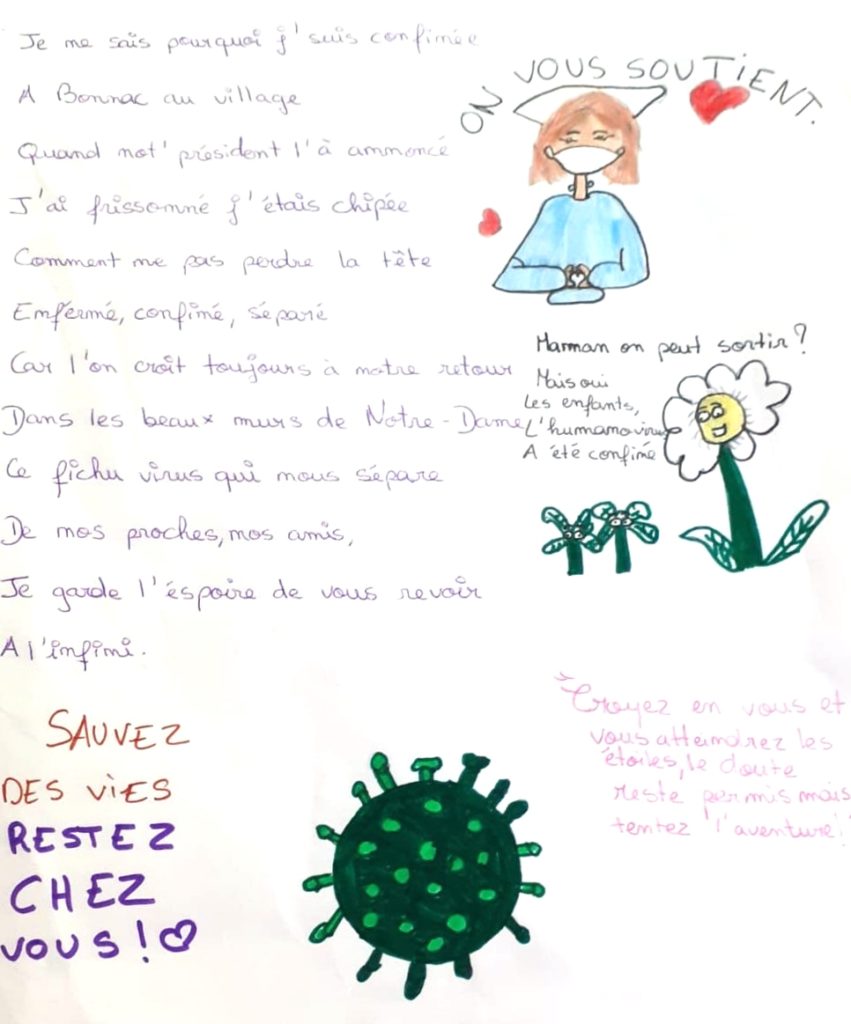 Je ne sais pourquoi j'suis confinée
A Bonnac au village
Quand not' président l'à annoncé
J'ai frissonné j'étais chipée
Comment ne pas perdre la tête
Enfermé, confiné, séparé
Car l'on croit toujours à notre retour
Dans les beaux murs de Notre-Dame
Ce fichu virus qui nous sépare
De nos proches, nos amis,
Je garde l'éspoire de vous revoir
A l'infini.
ON VOUS SOUTIENT.
Maman on peut sortir?
Mais oui
Les enfants,
L'humanovirus
A été confiné
SAUVEZ
DES VIES
RESTEZ
CHEZ
VOUS!
Croyez en vous et
vous atteindrez les
étoiles, le doute
reste permis mais
tentez "l'aventure!"